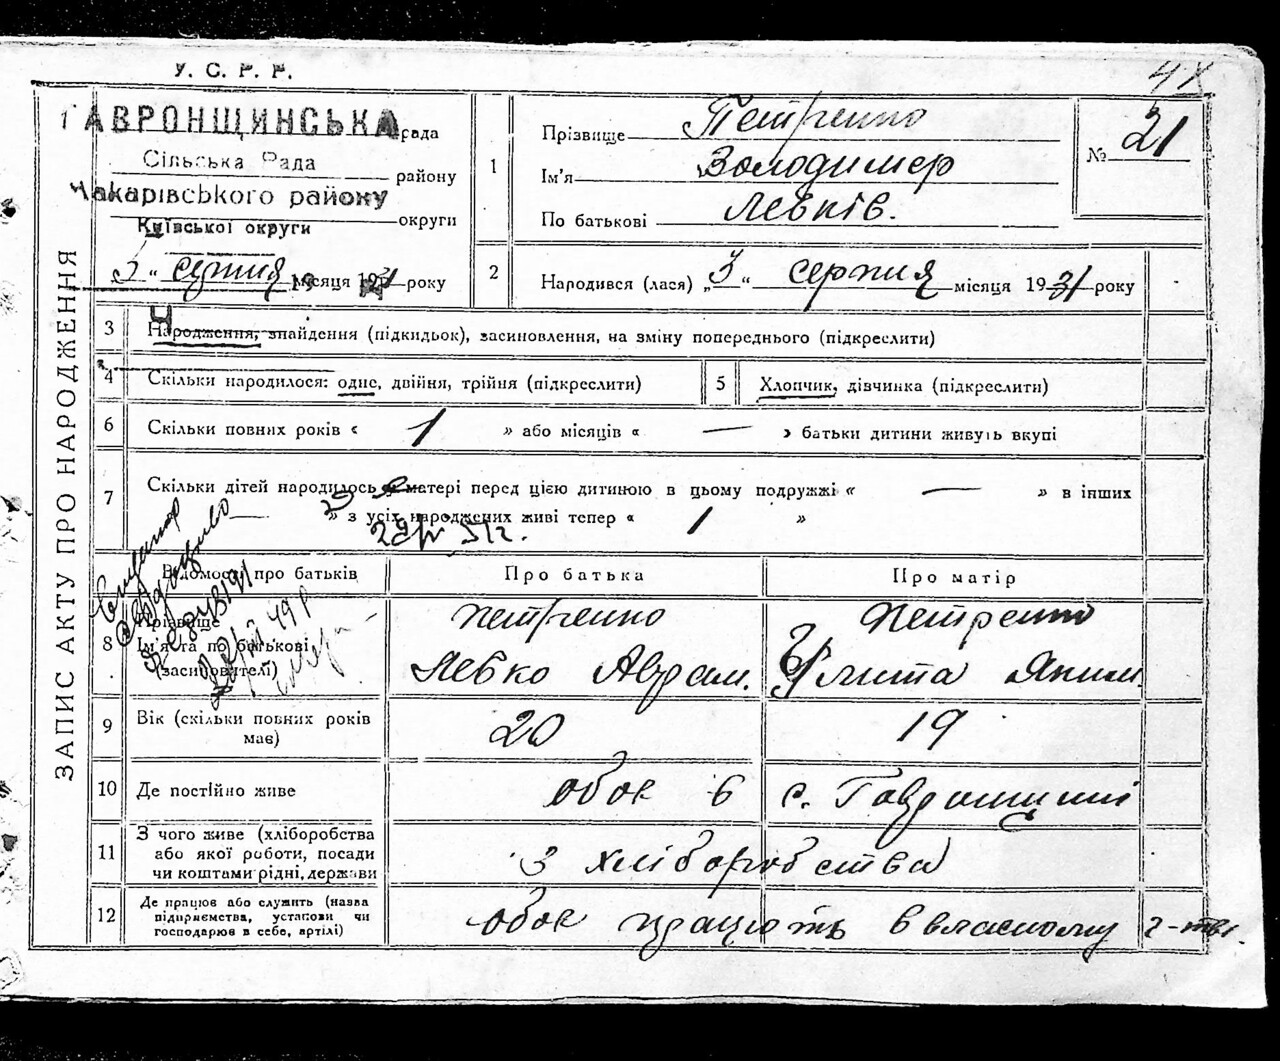 У. С. Р. Р.
ЗАПИС АКТУ ПРО НАРОДЖЕННЯ
ГАВРОНЩИНСЬКА рада
Сільська Рада району
Макарівського району округи
Київської округи
3 " серпня місяця 1931 року
1 Прізвище Петренко
Ім'я Володимер
По батькові Левків.
№ 21
2 Народився (лася) „3“ серпня місяця 1931 року
3 Народження, знайдення (підкидьок), засиновлення, на зміну попереднього (підкреслити)
4 Скільки народилося: одне, двійня, трійня (підкреслити)
5 Хлопчик, дівчинка (підкреслити)
6 Скільки повних років « 1 » або місяців « — » батьки дитини живуть вкупі
7 Скільки дітей народилось у матері перед цією дитиною в цьому подружжі « — » в інших
— » з усіх народжених живі тепер « 1 »
Відомості про батьків Про батька Про матір
8 Прізвище Петренко Петренко
Ім'я та по батькові Левко Аврам. Яким.
(засиновителі)
9 Вік (скільки повних років має) 20 19
10 Де постійно живе обоє в с. Гавронщині
11 З чого живе (хліборобства
або якої роботи, посади
чи коштами рідні, держави З хліборобства
12 Де працює або служить (назва
підприємства, установи чи
господарює в себе, артілі) обоє працюють в власному г-тві.